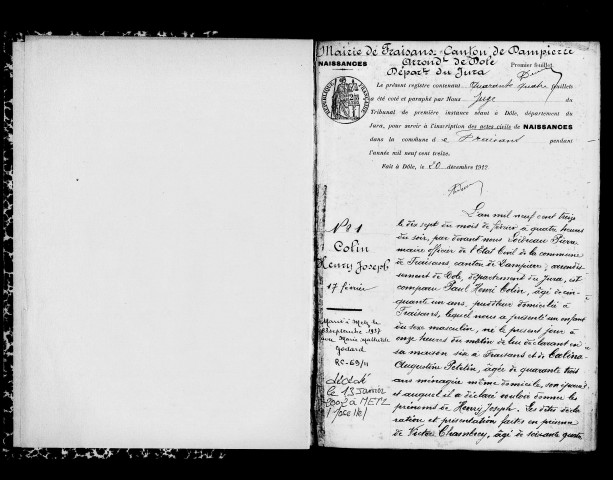 Mairie de Fraisans - Canton de Dampierre
Arrond^t de Dole
Dépar^t du Jura
NAISSANCES
Premier feuillet
Le présent registre contenant Quarante quatre feuillets
a été coté et paraphé par Nous Juge du
RÉPUBLIQUE FRANÇAISE
Tribunal de première instance séant à Dôle, département du
Jura, pour servir à l'inscription des actes civils de NAISSANCES
dans la commune d e Fraisans pendant
l'année mil neuf cent treize.
Fait à Dôle, le 20 décembre 1912
N° 1
Colin
Henry Joseph
17 février
Marié à Metz le
septembre 1937
avec Marie Mathilde
Godard
RC-69/11
décédé
le 13 Janvier
2002 à METZ
(Moselle)
L'an mil neuf cent treize
le dix sept du mois de février à quatre heures
du soir, par devant nous Pierre
maire officier de l'Etat Civil de la commune
de Fraisans, canton de Dampierre, arrondis-
sement de Dole, département du Jura, est
comparu Paul Henri Colin, âgé de cin-
quante un ans, puddleur domicilié à
Fraisans, lequel nous a présenté un enfant
du sexe masculin, né le présent jour à
onze heures du matin de lui déclarant en
sa maison sise à Fraisans et de
Augustine Petetin, âgée de quarante trois
ans ménagère même domicile, son épouse
et auquel il a déclaré vouloir donner les
prénoms de Henry Joseph. Les dites décla-
ration et présentation faites en présence
de Victor Chambrey, âgé de soixante quatre